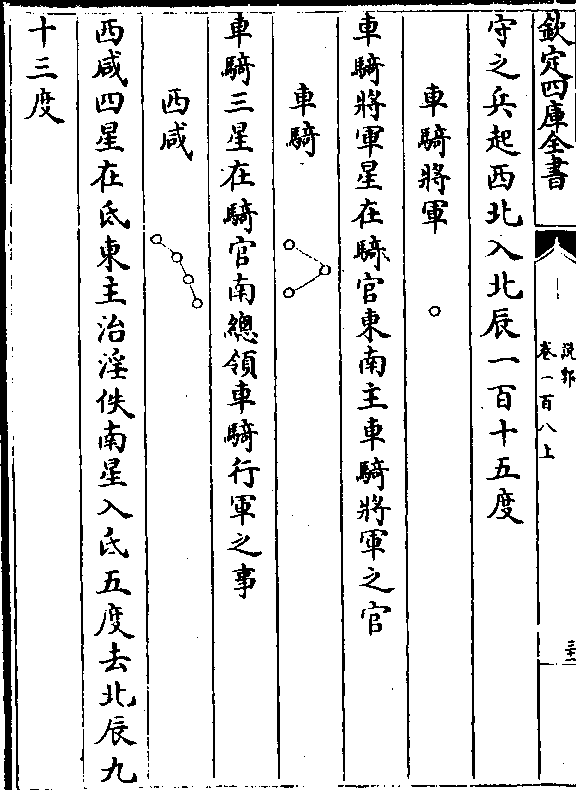 欽定四庫全書
說郛
卷一百八上
守之兵起西北入北辰一百十五度
車騎將軍
車騎將軍星在騎官東南主車騎將軍之官
車騎
車騎三星在騎官南總領車騎行軍之事
西咸
西咸四星在氐東主治淫佚南星入氐五度去北辰九
十三度